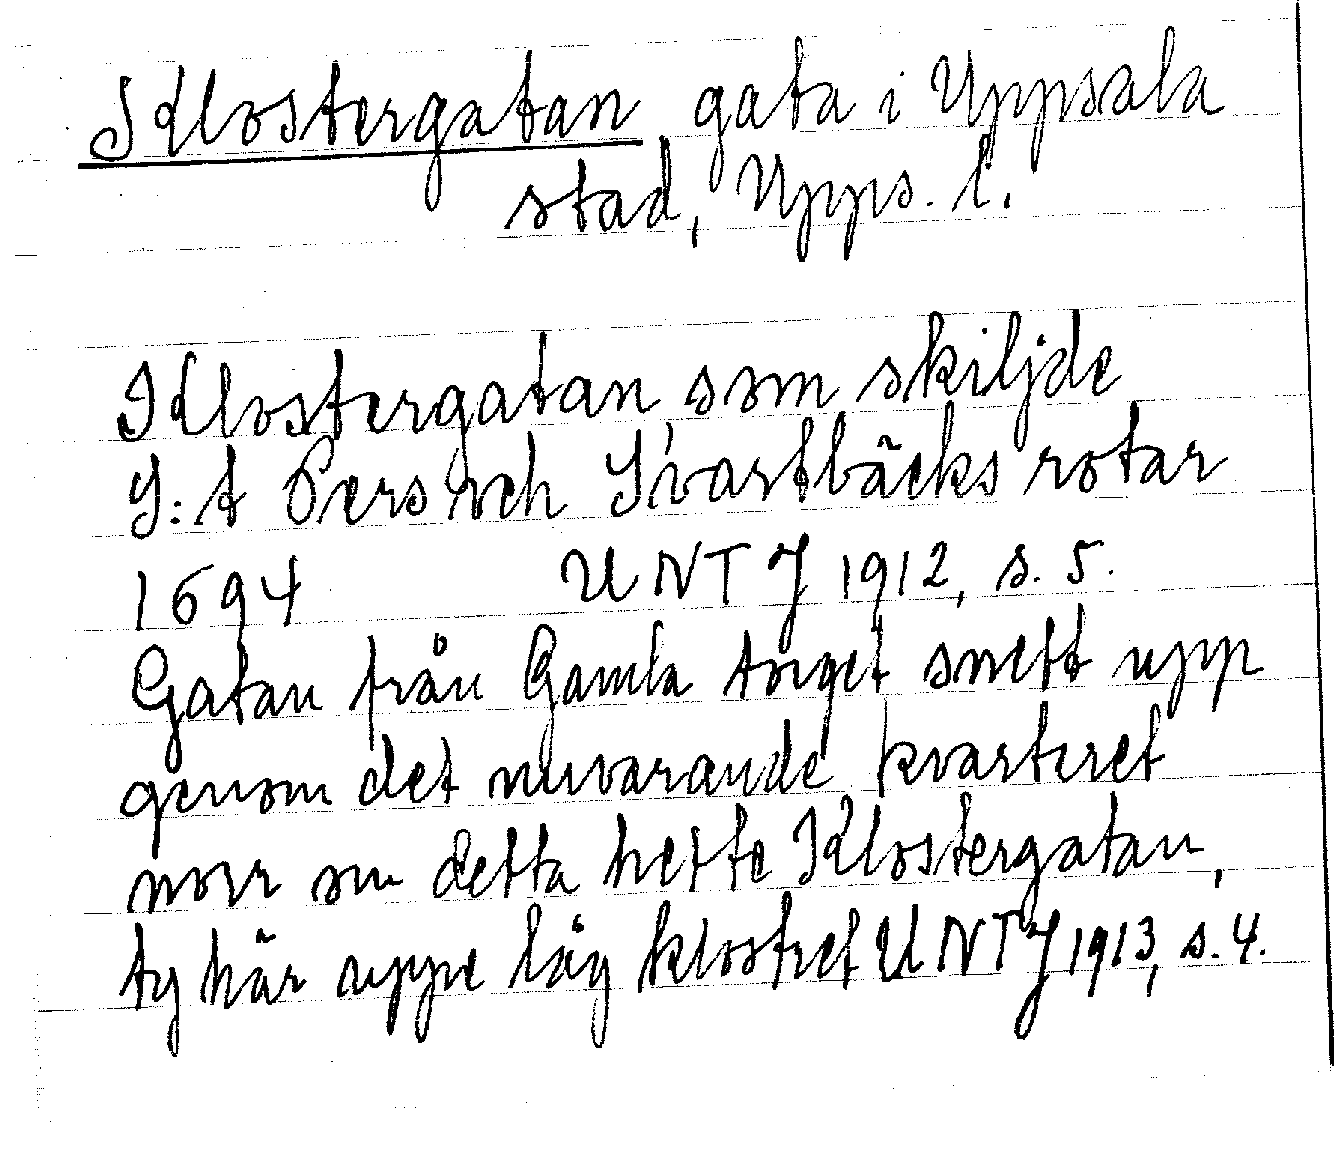 Klostergatan gata i Uppsala
stad, Upps. l.
Klostergatan som skiljde
S:t Pers och Svartbäcks rotar
1694 UNT J 1912, s. 5.
Gatan från Gamla torget snett upp
genom det nuvarande kvarteret
norr om detta hette Klostergatan,
ty här uppe låg klostret UNT J 1913, s. 4.